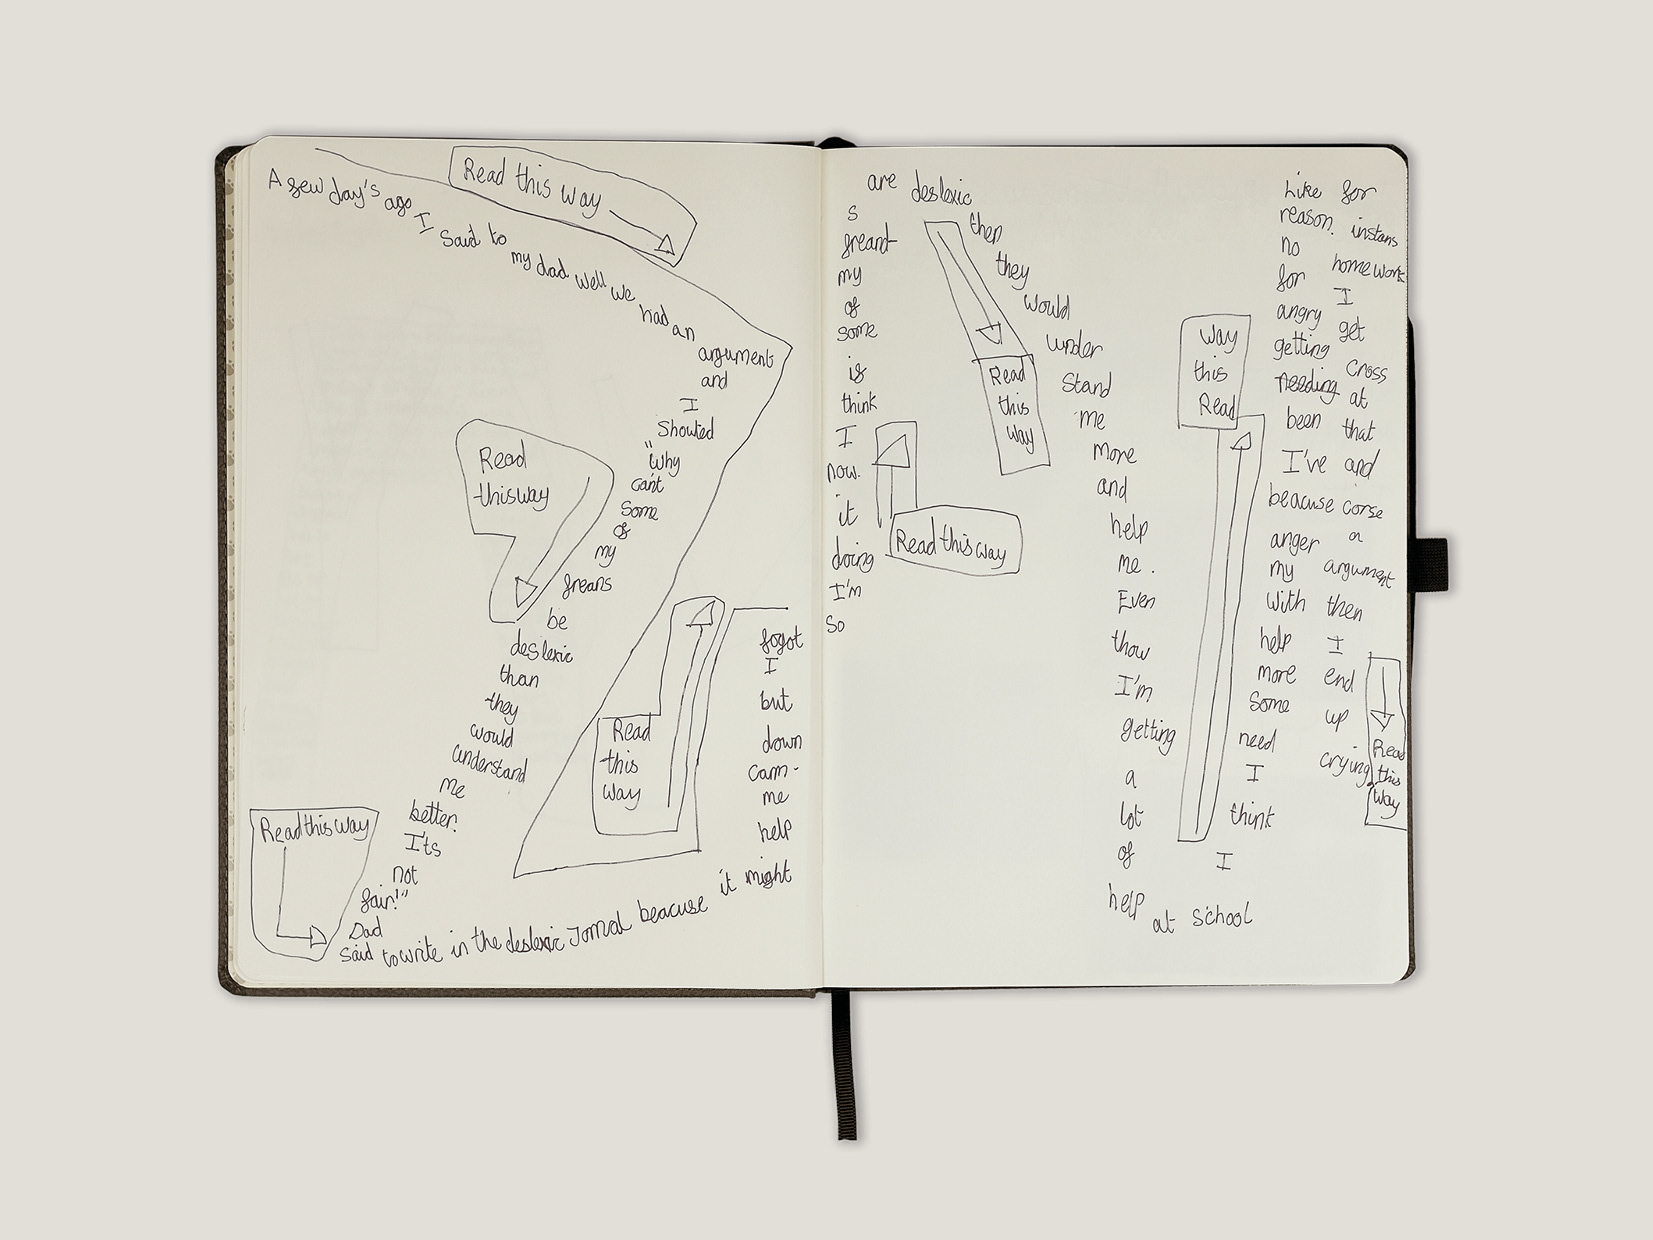 Read this way
A few day's ago I said to my dad well we had an arguments
and
I
Showted
"Why
can't
Some
of
my
freans
be
deslexic
than
they
would
understand
me
better.
It's
not
fair!"
Dad
said to write in the deslexic Jornal beacuse it might
help
me
cam-
down
but
I
fogot
Read
this way
Read this way
Read
this
way
So
I'm
doing
it
now.
I
think
is
some
of
my
freand-
s
are deslexic
then
they
would
under
Stand
me
more
and
help
me.
Even
thow
I'm
getting
a
lot
of
help
at school
I
think
I
need
Some
more
help
with
my
anger
beacuse
I've
been
needing
getting
angry
for
no
reason.
Like for
instans
homework
I
get
cross
at
that
and
corse
a
argument
then
I
end
up
crying
Read this way
Read
this
way
Way
this
Read
Read
this
Way